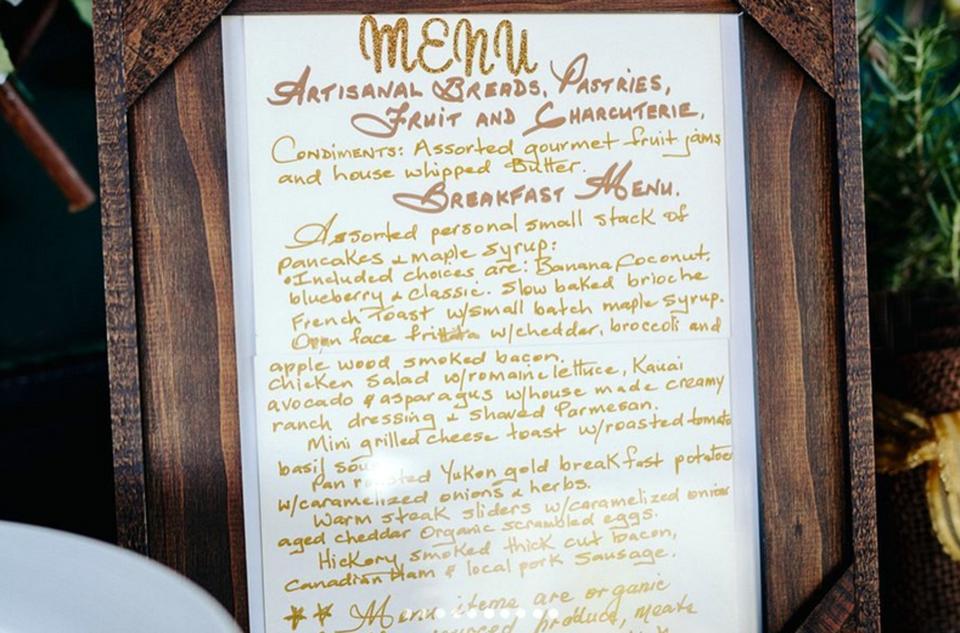 MENU
ARTISANAL BREADS, PASTRIES,
FRUIT AND CHARCUTERIE,
CONDIMENTS: Assorted gourmet fruit jams
and house whipped Butter.
BREAKFAST MENU.
Assorted personal small stack of
pancakes & maple syrup:
•Included choices are: Banana Coconut,
blueberry & Classic. Slow baked brioche
French Toast w/small batch maple syrup.
Open face w/cheddar, broccoli and
apple wood smoked bacon.
chicken Salad w/romaine lettuce, Kauai
avocado & asparagus w/house made creamy
ranch dressing & Shaved Parmesan.
Mini grilled cheese toast w/roasted tomato
basil
Pan roasted Yukon gold breakfast potatoes
w/caramelized onions & herbs.
Warm steak sliders w/caramelized onions
aged cheddar Organic scrambled eggs.
Hickory smoked thick cut bacon,
Canadian Ham & local pork Sausage.
** Menu items are organic
produce, meats